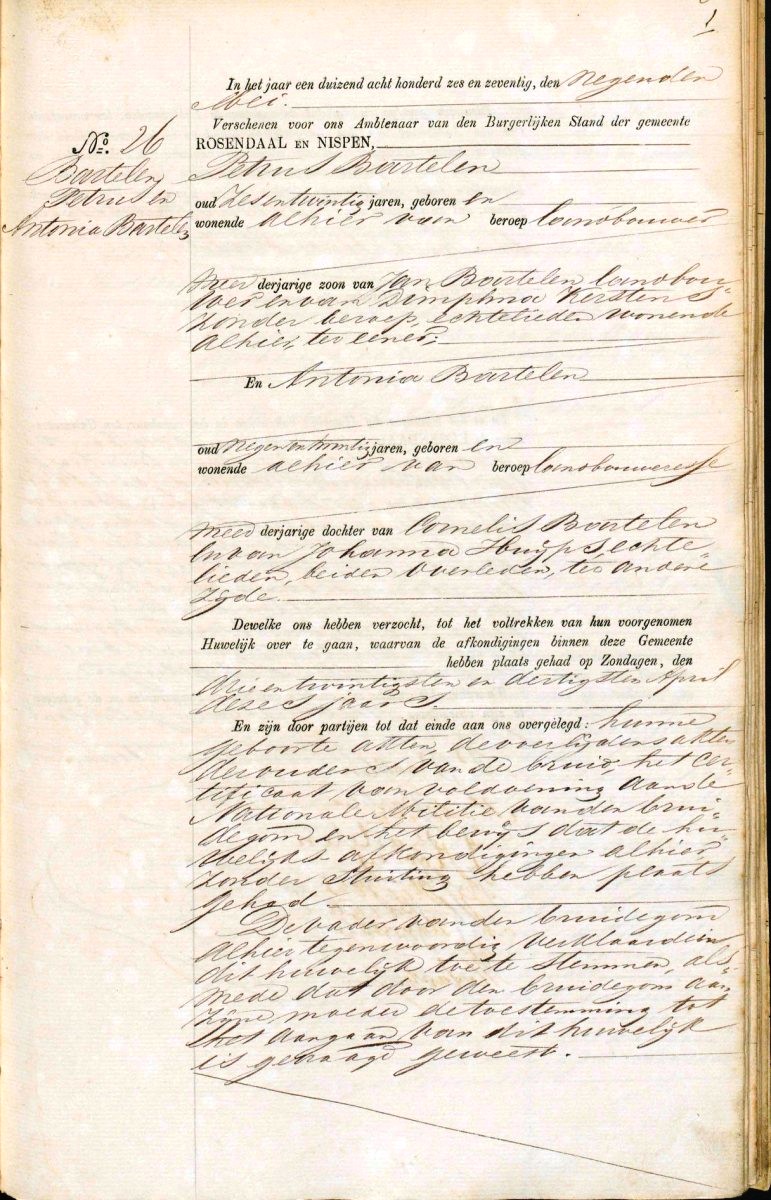 1
In het jaar een duizend acht honderd zes en zeventig, den negenden
Mei.
Verschenen voor ons Ambtenaar van den Burgerlijken Stand der gemeente
ROSENDAAL EN NISPEN,
No. 26
Bartelen
Petrus en
Antonia Bartelen
Petrus Bartelen
oud zesentwintig jaren, geboren en
wonende alhier van beroep landbouwer
meer derjarige zoon van Jan Bartelen landbou-
wer en van Dimphna Kerstens
zonder beroep, echtelieden wonende
alhier, ter eener;
En Antonia Bartelen
oud negenentwintig jaren, geboren en
wonende alhier van beroep landbouweresse
meer derjarige dochter van Cornelis Bartelen
en van Johanna Huijps echte-
lieden, beiden overleden, ter andere
zyde.
Dewelke ons hebben verzocht, tot het voltrekken van hun voorgenomen
Huwelijk over te gaan, waarvan de afkondigingen binnen deze Gemeente
hebben plaats gehad op Zondagen, den
drieentwintigsten en dertigsten April
dezes jaars.
En zijn door partijen tot dat einde aan ons overgelegd: hunne
geboorte akten, de overlijdens akten
der ouders van de bruid, het cer-
tificaat van voldoening aan de
Nationale Militie van den brui-
degom en het bewijs dat de hu-
welijks afkondigingen alhier
zonder stuiting hebben plaats
gehad.
De vader van den bruidegom
alhier tegenwoordig verklaarde in
dit huwelijk toe te stemmen, als-
mede dat door den bruidegom aan
zijne moeder de toestemming tot
het aangaan van dit huwelijk
is gevraagd geweest.